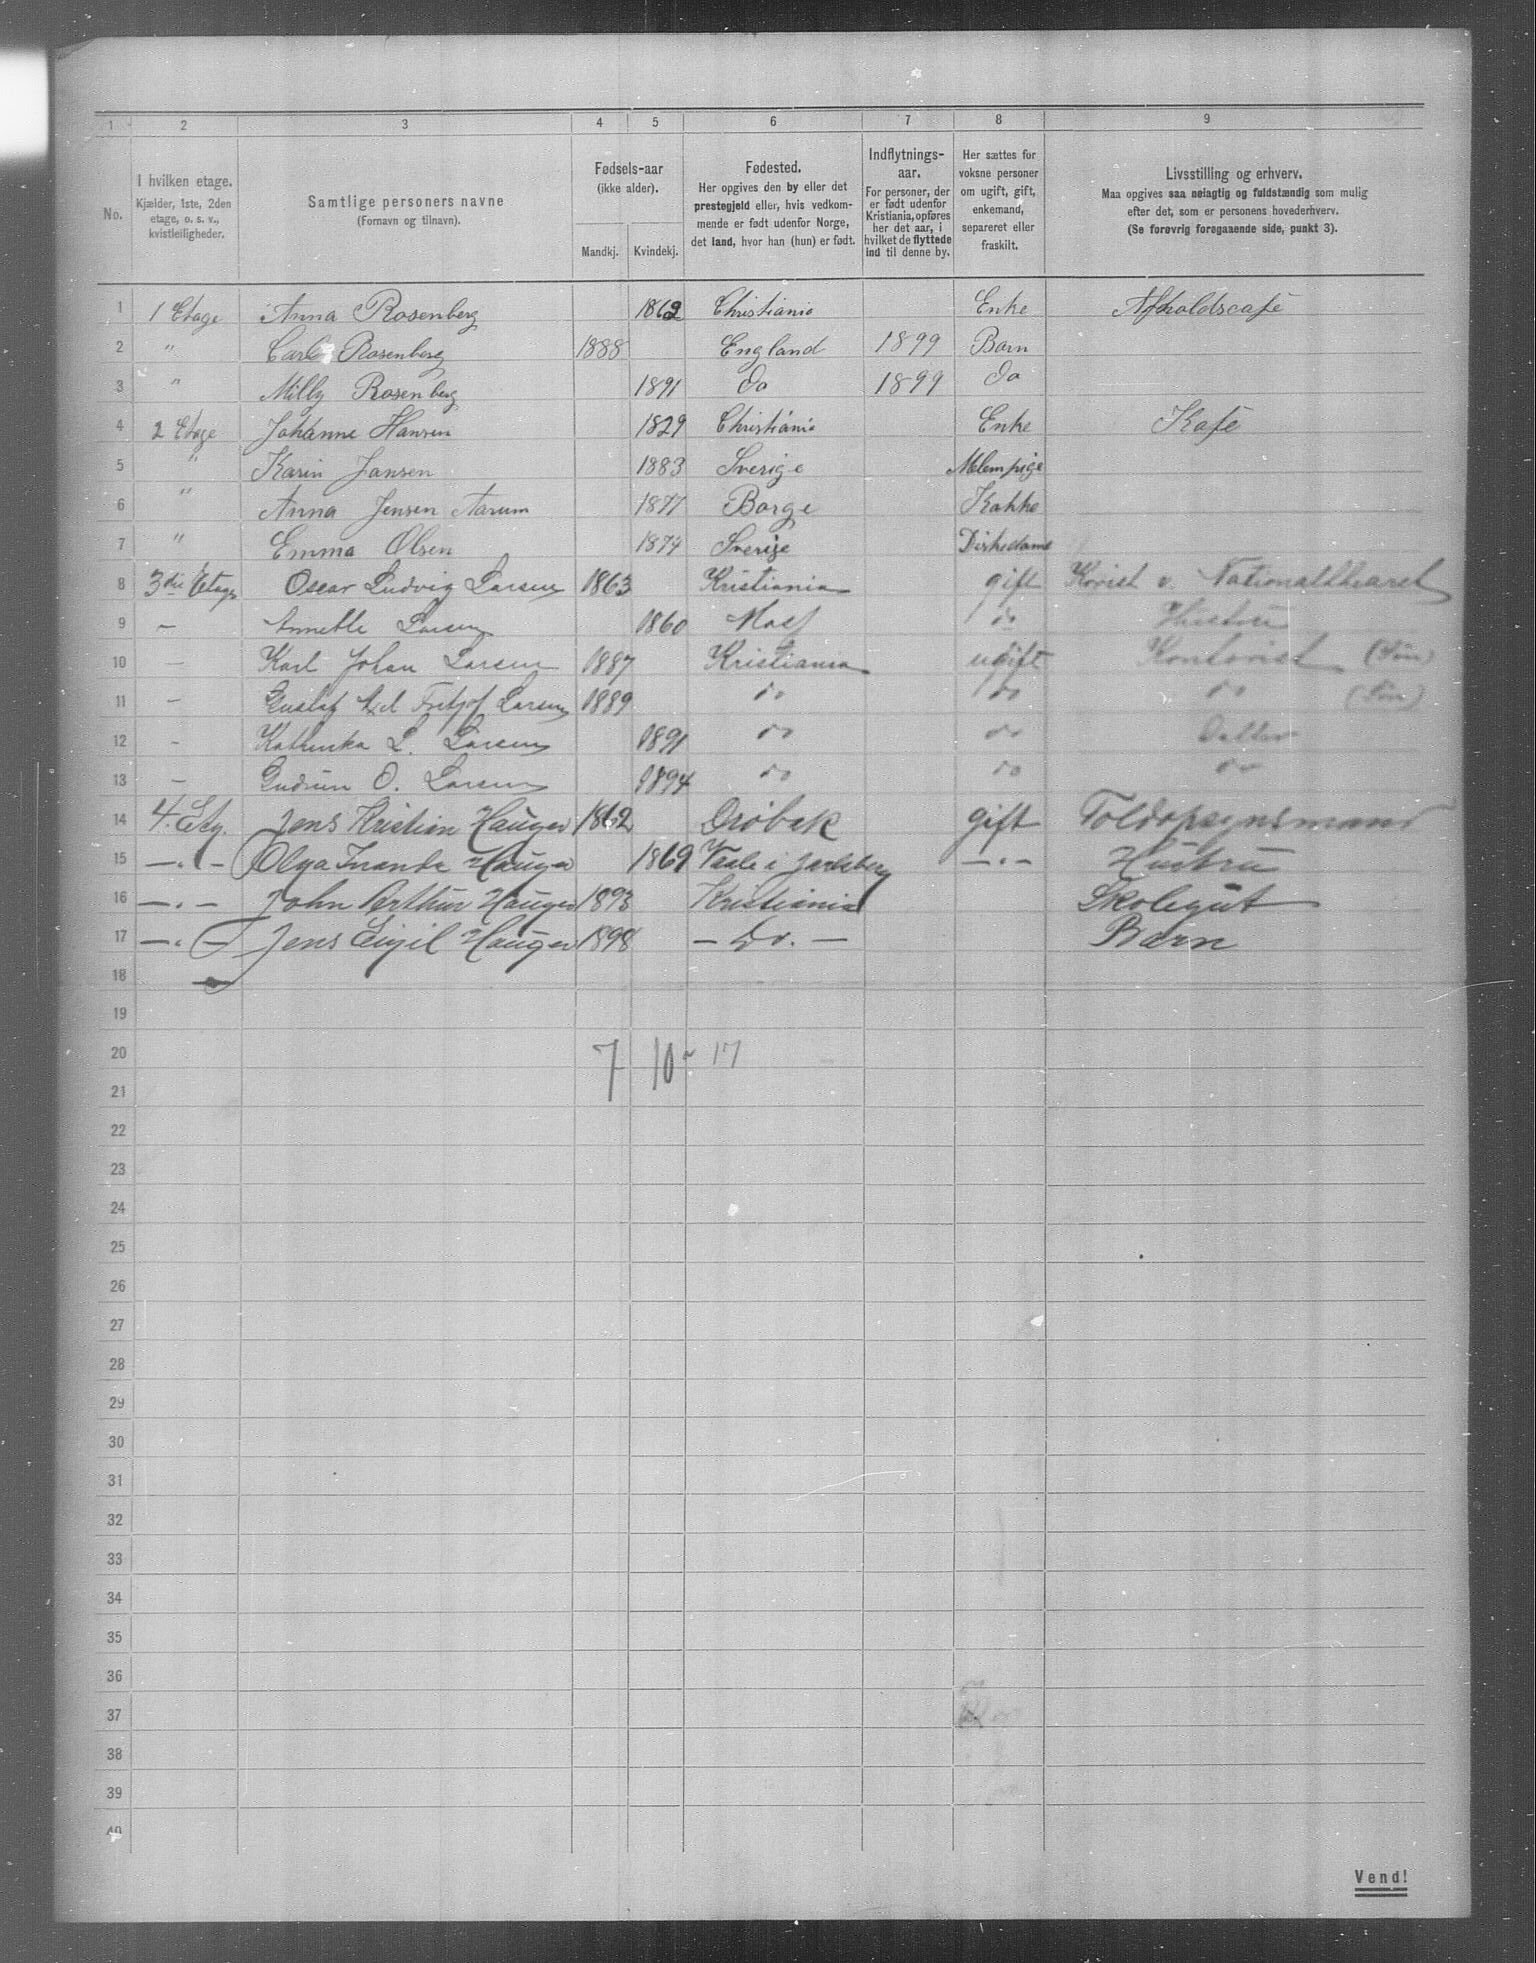 1 2 3 4 5 6 7 8 9
No.
I hvilken etage.
Kjælder, 1ste, 2den
etage, o. s. v.,
kvistleiligheder.
Samtlige personers navne
(Fornavn og tilnavn).
Fødsels-aar
(ikke alder).
Mandkj. Kvindekj.
Fødested.
Her opgives den by eller det
prestegjeld eller, hvis vedkom-
mende er født udenfor Norge,
det land, hvor han (hun) er født.
Indflytnings-
aar.
For personer, der
er født udenfor
Kristiania, opføres
her det aar, i
hvilket de flyttede
ind til denne by.
Her sættes for
voksne personer
om ugift, gift,
enkemand,
separeret eller
fraskilt.
Livsstilling og erhverv.
Maa opgives saa nøiagtig og fuldstændig som mulig
efter det, som er personens hovederhverv.
(Se forøvrig foregaaende side, punkt 3).
1 1 Etage Anna Rosenberg 1862 Christiania Enke Afholdscafé
2 " Carl Rosenberg 1888 England 1899 Barn
3 " Milly Rosenberg 1891 do 1899 do
4 2 Etage Johanne Hansen 1829 Christiania Enke Kafé
5 " Karin Jansen 1883 Sverige
6 " Anna Jensen Aarum 1877 Borge Kokke
7 " Emma Olsen 1874 Sverige Diskedame
8 3die Etage Oscar Ludvig Larsen 1863 Kristiania gift Korist v. Nationaltheatret
9 — Annette Larsen 1860 Moss do Hustru
10 — Karl Johan Larsen 1887 Kristiania ugift Kontorist (Søn)
11 — Gustaf Fritjof Larsen 1889 do do do (Søn)
12 - Kathinka L. Larsen 1891 do do Datter
13 — Gudrun O. Larsen 1894 do do do
14 4. Etg. Jens Kristian Hauger 1862 Drøbak gift Toldopsynsmand
15 —"— Olga Hauger 1869 Vaale i Jarlsberg —"— Hustru
16 —"— John Arthur Hauger 1893 Kristiania Skolegut
17 —"— Jens Eigil Hauger 1898 — Do. — Barn
18
19
20 7 10 - 17
21
22
23
24
25
26
27
28
29
30
31
32
33
34
35
36
37
38
39
40
Vend!